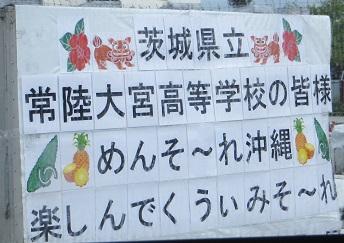 茨城県立
常陸大宮高等学校の皆様
めんそ～れ沖縄
楽しんでくうぃみそ～れ